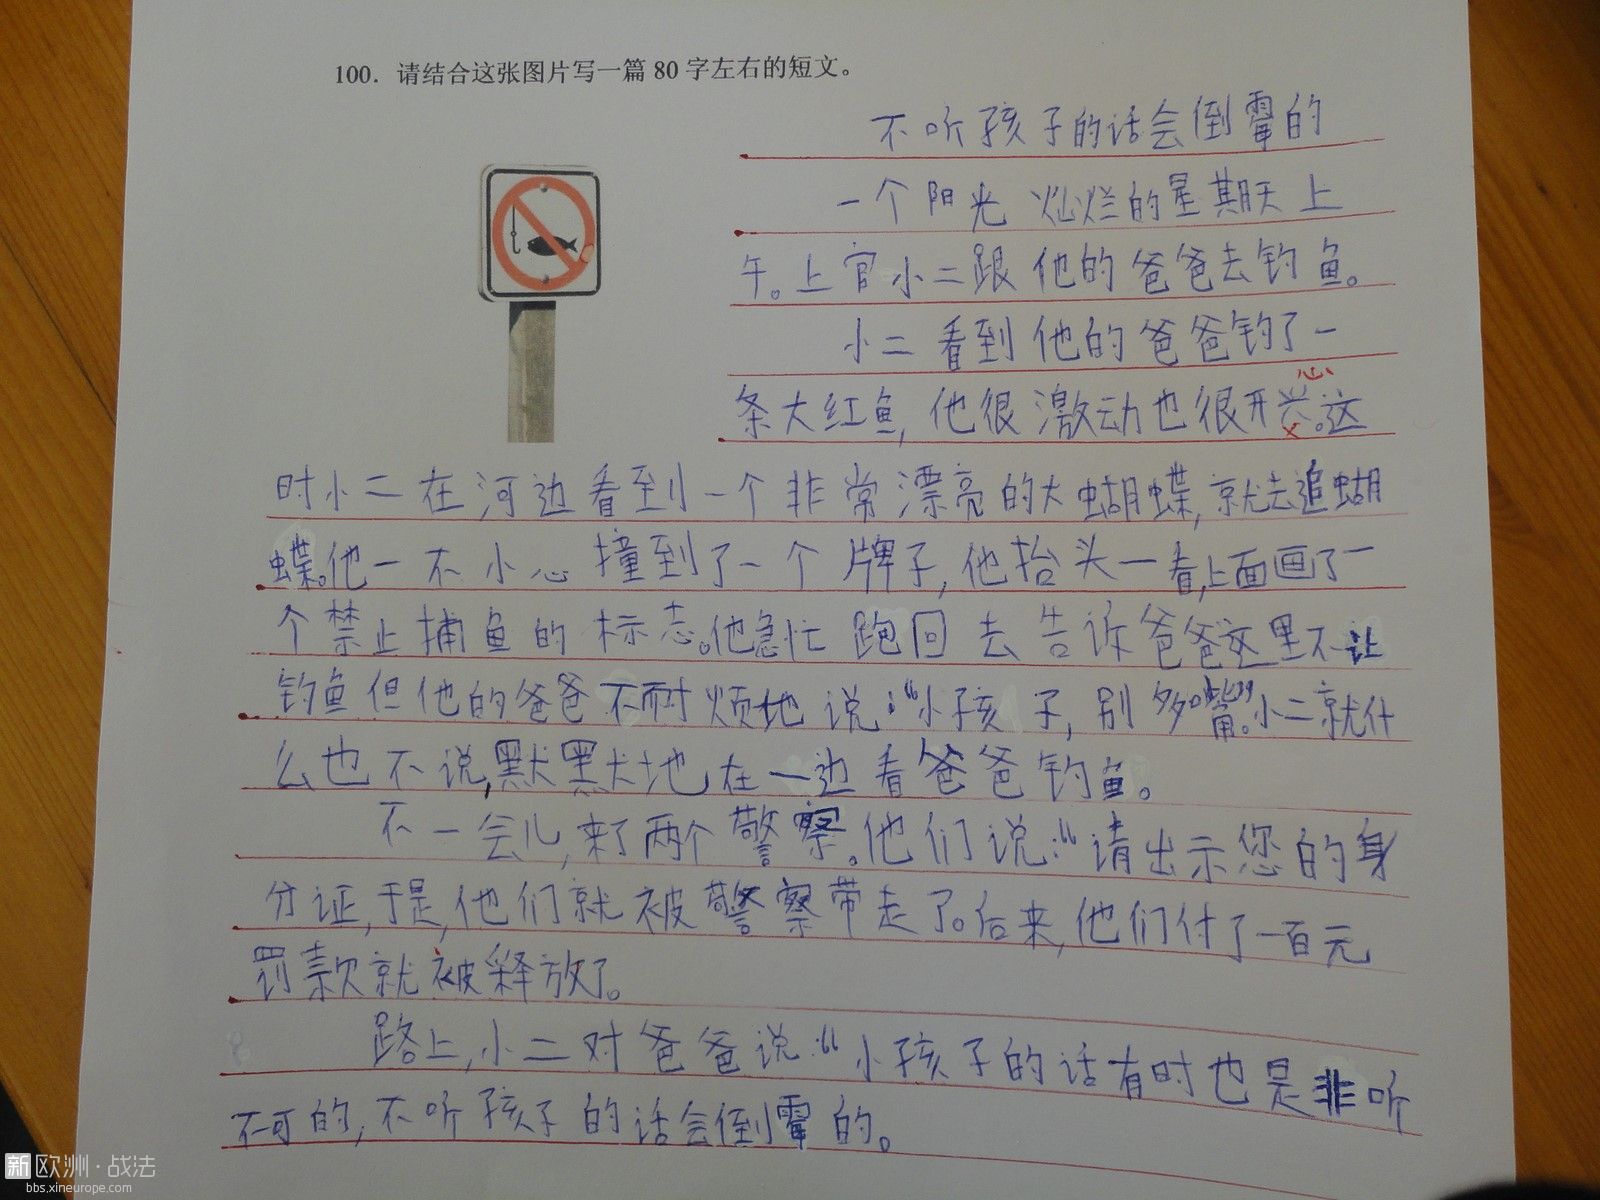 100. 请结合这张图片写一篇 80 字左右的短文。
不听孩子的话会倒霉的
一个阳光灿烂的星期天上
午。上官小二跟他的爸爸去钓鱼。
小二看到他的爸爸钓了一
心
条大红鱼,他很激动也很开。这
时小二在河边看到一个非常漂亮的大蝴蝶,就去追蝴
蝶。他一不小心撞到了一个牌子,他抬头一看,上面画了一
个禁止捕鱼的标志。他急忙跑回去告诉爸爸这里不让
钓鱼但他的爸爸不耐烦地说:“小孩子,别多嘴。”小二就什
么也不说,默默地在一边看爸爸钓鱼。
不一会儿,来了两个警察。他们说:“请出示您的身
分证,于是,他们就被警察带走了。后来,他们付了一百元
罚款就被释放了。
路上,小二对爸爸说:“小孩子的话有时也是非听
不可的,不听孩子的话会倒霉的。
新欧洲·战法
bbs.xineurope.com